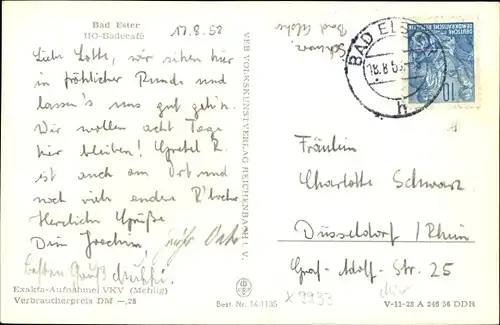 Bad Elster
HO-Badecafé
17.8.58
Liebe Lotte, wir sitzen hier
in fröhlicher Runde und
lassen's uns gut geh'n.
Wir wollen acht Tage
hier bleiben! Gretel Z.
ist auch am Ort und
noch viele andere
Herzliche Grüße
Dein Joachim,
besten Gruß
Exakta-Aufnahme VKV (Mehlig)
Verbraucherpreis DM –,28
VEB VOLKSKUNSTVERLAG REICHENBACH I. V.
Best.-Nr. 14/1135
Schwarz
Bad Elster
BAD ELSTER
18.8.58
h
DEUTSCHE
DEMOKRATISCHE REPUBLIK
10
Fräulein
Charlotte Schwarz
Düsseldorf / Rhein
Graf-Adolf-Str. 25
X 9933
V-11-28 A 246 56 DDR